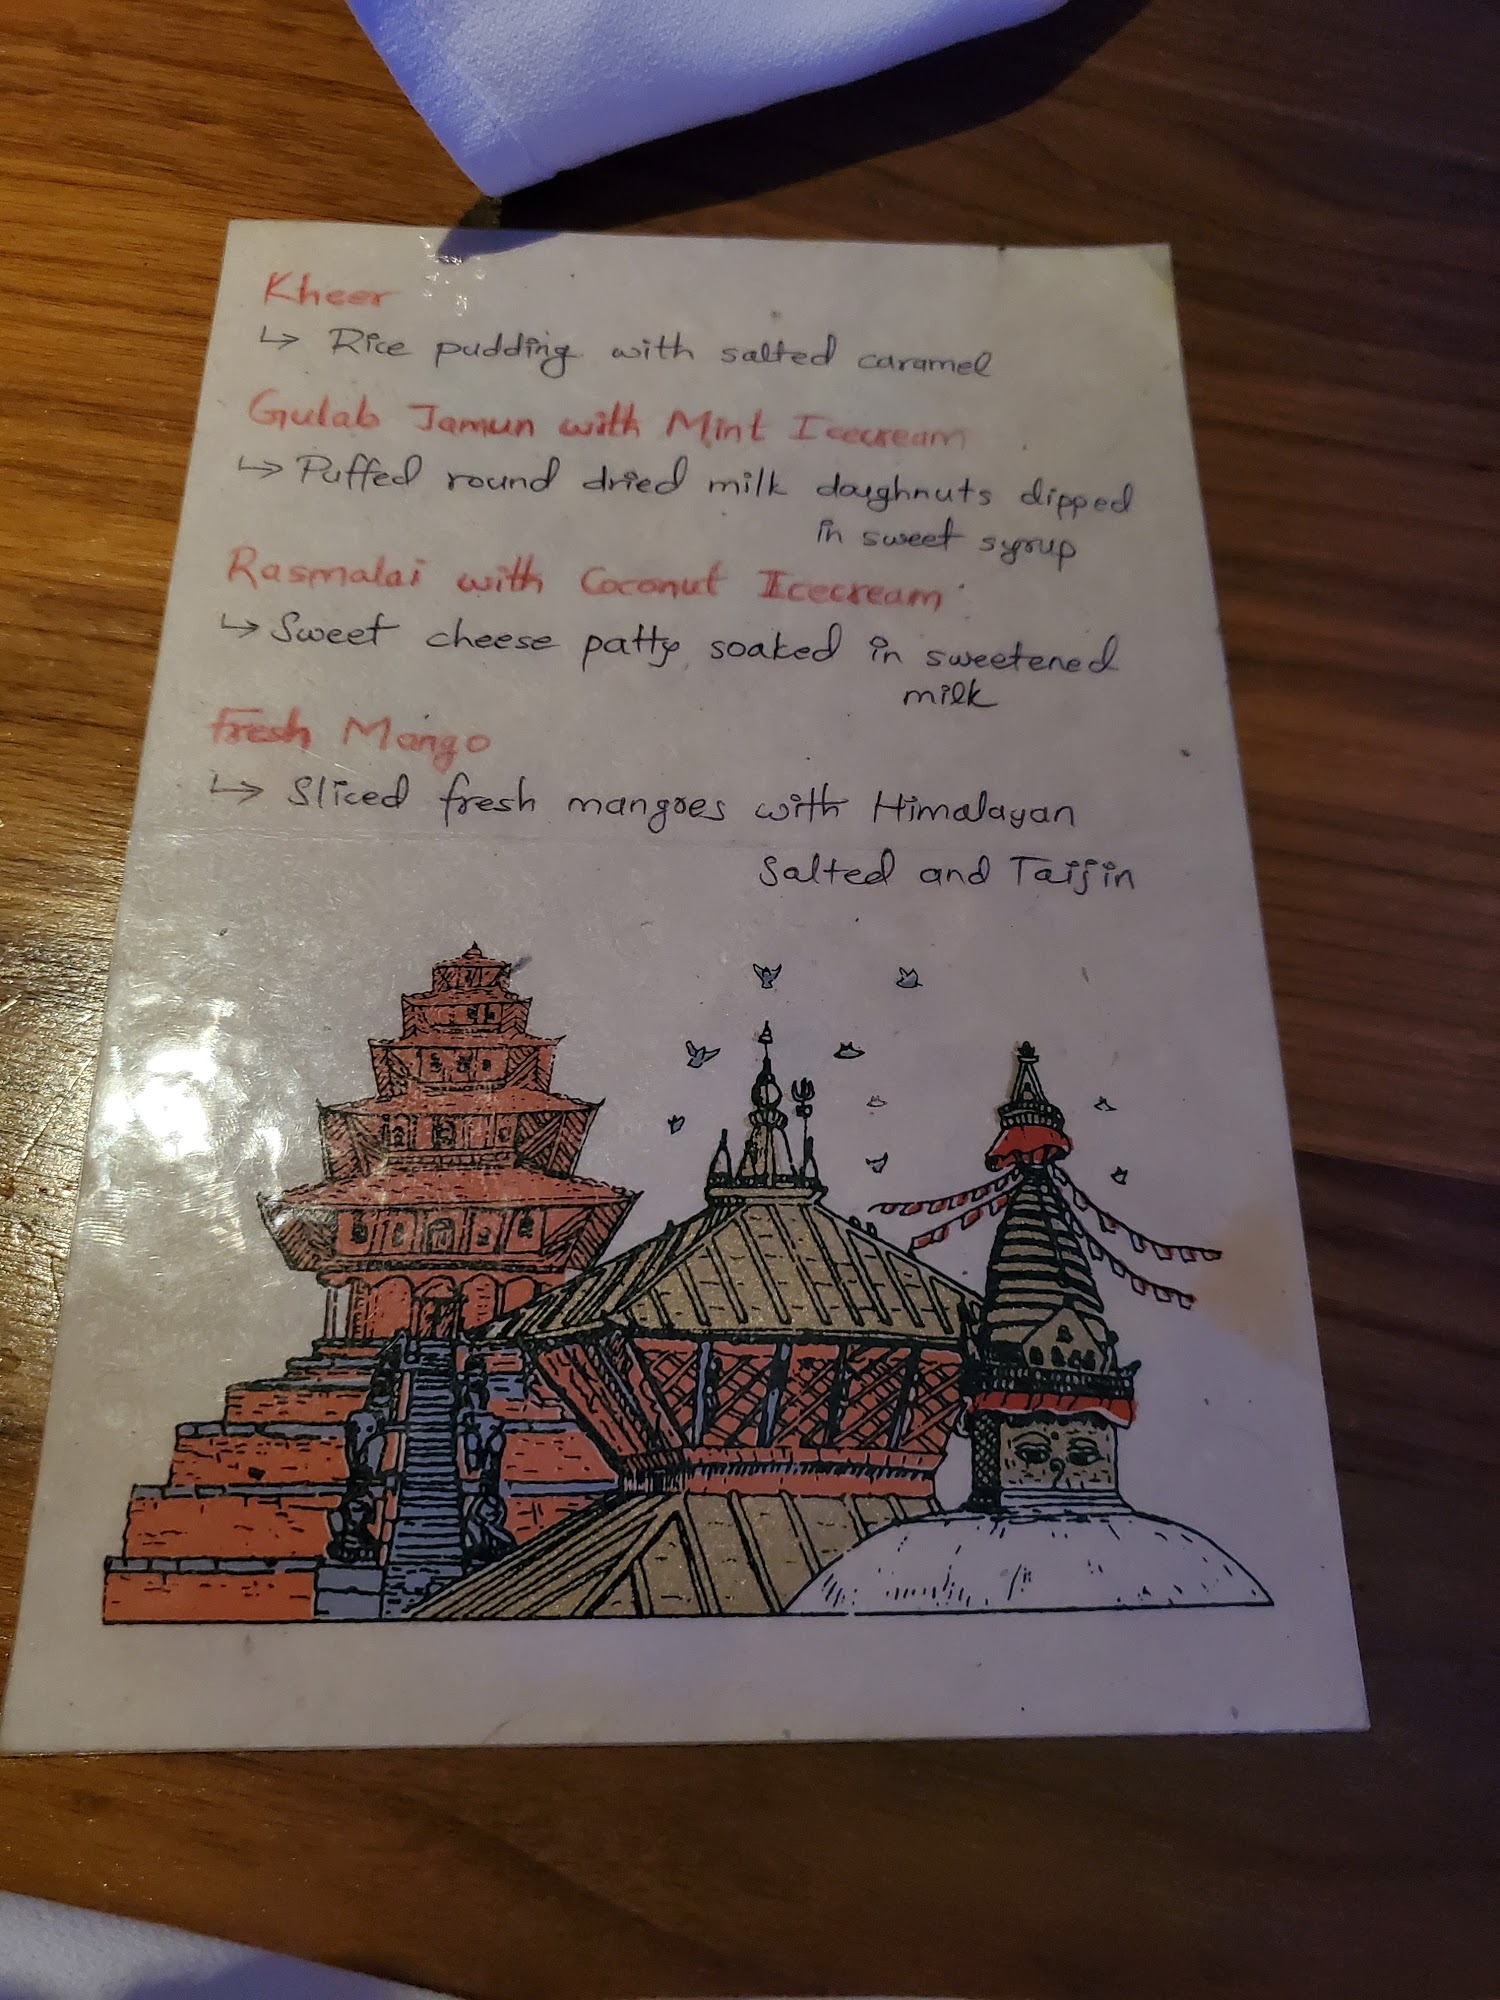 Kheer
↳ Rice pudding with salted caramel
Gulab Jamun with Mint Icecream
↳ Puffed round dried milk doughnuts dipped
in sweet syrup
Rasmalai with Coconut Icecream
↳ Sweet cheese patty, soaked in sweetened
milk
Fresh Mango
↳ Sliced fresh mangoes with Himalayan
Salted and Taijin